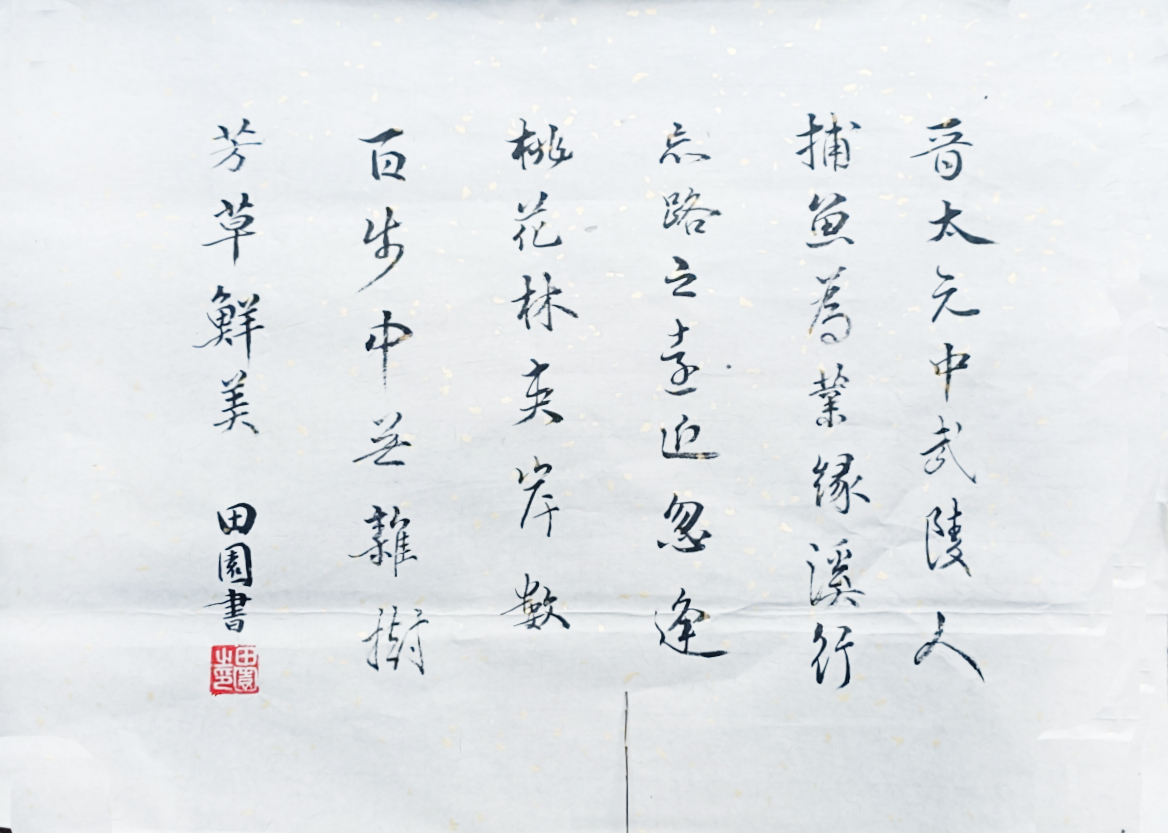 晋太元中武陵人
捕魚為業緣溪行
忘路之遠近忽逢
桃花林夾岸數
百步中無雜樹
芳草鮮美
田園書
田園之印